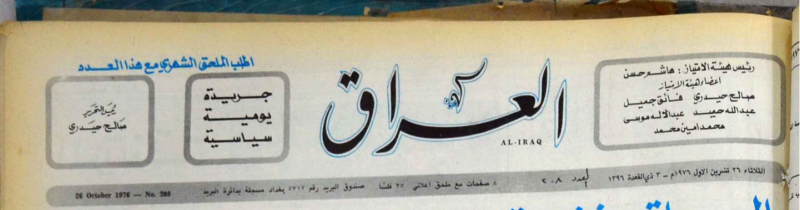 اطلب الملحق الشهري مع هذا العدد
رئيس هيئة الامتياز : هاشم حسن
اعضاء هيئة الامتياز
صالح حيدري فائق جميل
عبدالله حميد عبدالاله موسى
محمد امين محمد
العراق
AL-IRAQ
جريدة
يومية
سياسية
صالح حيدري
الثلاثاء ٢٦ تشرين الاول ١٩٧٦م - ٣ ذي القعدة ١٣٩٦
العدد ٢٠٨
٨ صفحات مع ملحق اعلاني ٢٥ فلسا
صندوق البريد رقم بغداد مسجلة بدائرة البريد
26 October 1976 — No.